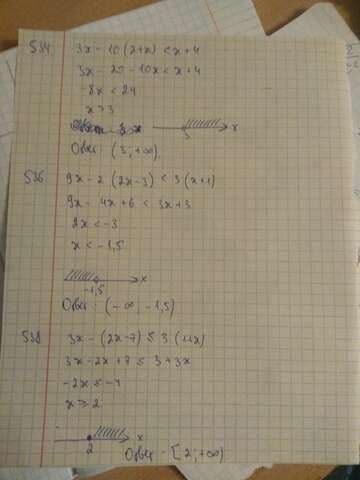 534 3x - 10(2+x) < x+4
3x - 20 - 10x < x+4
-8x < 24
x > 3
3 x
Ответ: (3; +∞)
536 9x - 2(2x-3) < 3(x+1)
9x - 4x+6 < 3x+3
2x < -3
x < -1,5
-1,5 x
Ответ: (-∞, -1,5)
538 3x - (2x-7) ≤ 3(1+x)
3x - 2x + 7 ≤ 3+3x
-2x ≤ -4
x ≥ 2
2 x
Ответ - [2; +∞)